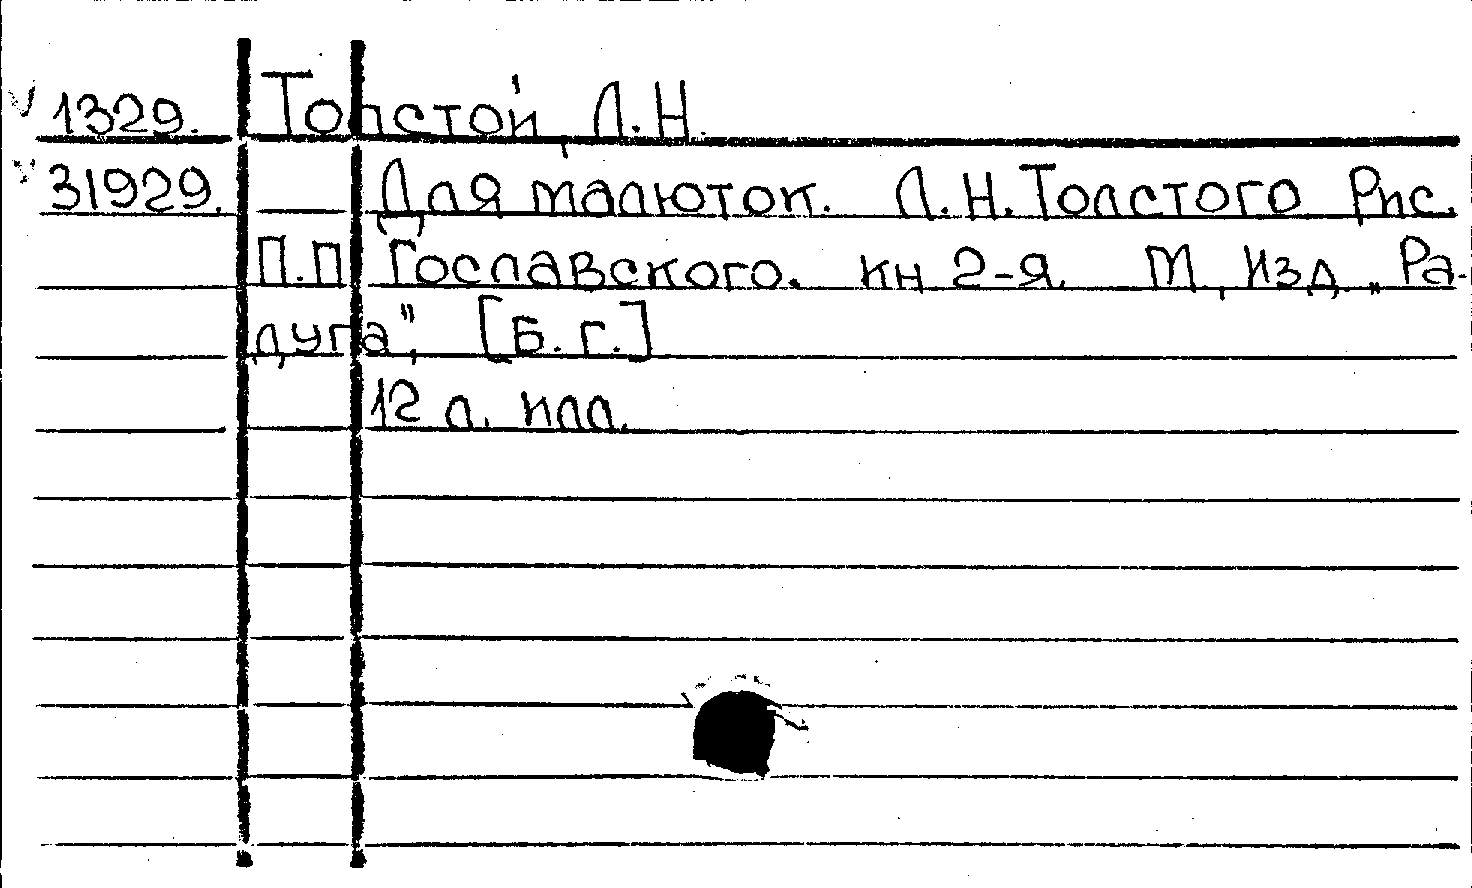 1329. Толстой, Л.Н.
31929. Для малюток. Л.Н.Толстого Рис.
П.П. Гославского. кн 2-я. М, Изд. „Ра-
дуга", [Б. г.]
12 л. илл.